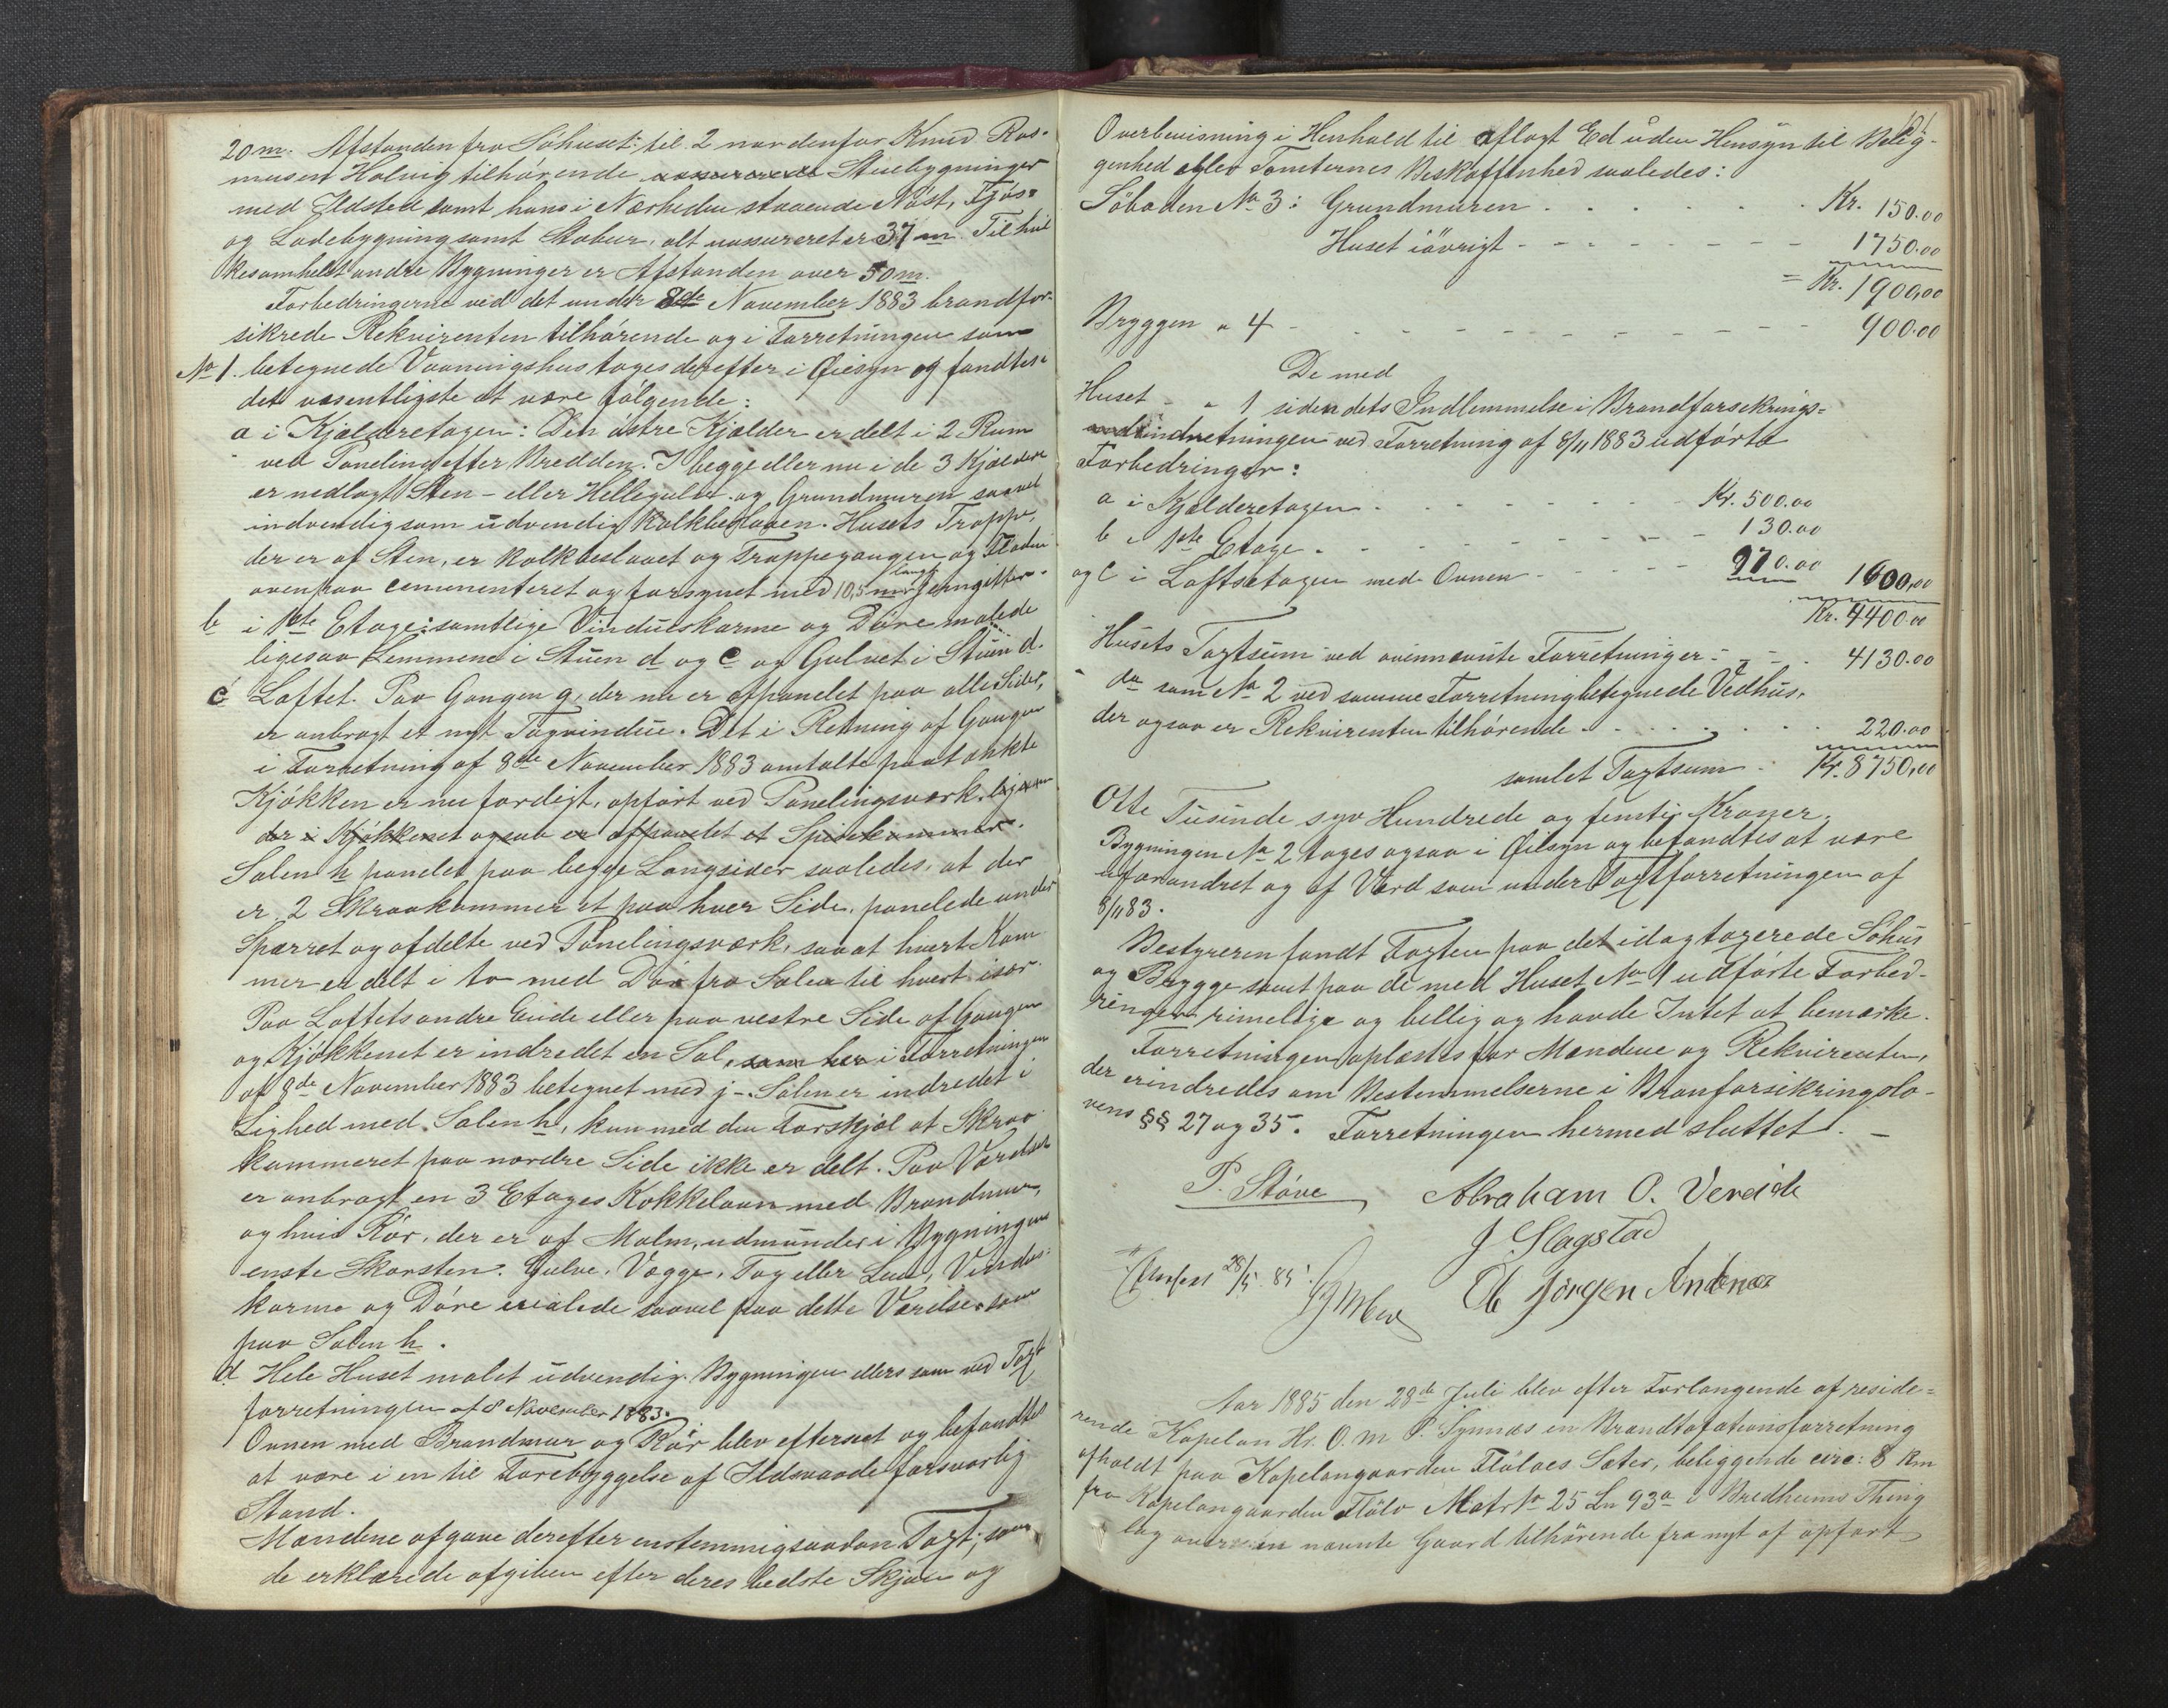 20 m. Afstanden fra Söhuset til 2 nordenfor Knud Ras-
musen Holvig tilhörende Stuebygninger
med Ildsted samt hans i Nærheden staaende Nöst, Fjös-
og Ladebygning samt Stabur, alt uassureret er 37 m. Til hvil
kesomhelst andre Bygninger er Afstanden over 50 m.
Forbedringerne ved det under 8de November 1883 brandfor-
sikrede Rekvirenten tilhörende og i Forretningen som
No 1. betegnede Vaaningshus toges derefter i Öiesyn og fandtes
det væsentligste at være fölgende:
a i Kjælderetagen: Den östre Kjælder er delt i 2 Rum
ved Paneling efter Bredden. I begge eller nu i de 3 Kjældere
er nedlagt Sten- eller Hellegulv og Grundmuren saavel
indvendig som udvendig Kalkbeslaaen. Husets Trappe,
der er af Sten, er kalkbeslaaet og Trappegangen og Fladen
ovenpaa cementeret og forsynet med 10,5 m langt Jerngitter.
b i 1ste Etage: samtlige Vindueskarme og Döre malede
ligesaa Lemmene i Stuen d og e og Gulvet i Stuen d.
c Loftet. Paa Gangen g, der nu er afpanelet paa alle Sider,
er anbragt et nyt Tagvindue. Det i Retning af Gangen
i Forretning af 8de November 1883 omtalte paatænkte
Kjökken er nu færdigt, opfört ved Panelingsværk, ligesom
der i Kjökkenet ogsaa er afpanelet et Spisekammer.
Salen h panelet paa begge Langsider saaledes, at der
er 2 Skraakammer et paa hver Side, panelede under
Sparret og afdelte ved Panelingsværk, saa at hvert Kam
mer er delt i to med Dör fra Salen til hvert især.
Paa Loftets andre Ende eller paa vestre Side af Gangen
og Kjökkenet er indredet en Sal, som her i Forretningen
af 8de November 1883 betegnet med j -. Salen er indredet i
Lighed med Salen h, kun med den Forskjel at Skraa
kammeret paa nordre Side ikke er delt. Paa Værelset
er anbragt en 3 Etages Kakkelovn med Brandmur,
og hvis Rör, der er af Malm, udmunder i Bygningens
enste Skorsten. Gulve, Vægge, Tag eller Lem, Vindues-
karme og Döre malede saavel paa dette Værelse som
paa Salen h.
d Hele Huset malet udvendig. Bygningen ellers som ved Taxt
forretningen af 8 November 1883.
Ovnen med Brandmur og Rör blev efterseet og befandtes
at være i en til Forebyggelse af Ildsvaade forsvarlig
Stand.
Mændene afgave derefter enstemmig saadan Taxt, som
de erklærede afgiven efter deres bedste Skjön og
Overbevisning i Henhold til aflagt Ed uden Hensyn til Belig-
genhed eller Tomternes Beskaffenhed saaledes:
Söboden No 3: Grundmuren . . . . . Kr. 150.00
Huset iövrigt - - - - - - - 1750.00
= Kr. 1900,00
Bryggen " 4 - - - - - - - - 900.00
De med
Huset - " 1 siden dets Indlemmelse i Brandforsikrings-
indretningen ved Forretning af 8/11 1883 udförte
Forbedringer:
a i Kjælderetagen . . . . . Kr. 500.00
b " 1ste Etage . - - - - - 130.00
og c i Loftsetagen med Ovnen - - - - 970.00 1600,00
Kr. 4400.00
Husets Taxtsum ved ovennævnte Forretninger - - - . 4130.00
do som No 2 ved samme Forretning betegnede Vedhus,
der ogsaa er Rekvirenten tilhörende . . . . . . 220.00
samlet Taxtsum . Kr. 8750,00
Otte Tusinde syv Hundrede og femti Kroner.
Bygningen No 2 toges ogsaa i Öiesyn og befandtes at være
uforandret og af Værd som under Taxtforretningen af
8/11 83.
Bestyreren fandt Taxten paa det idag taxerede Söhus
og Brygge samt paa de med Huset No 1 udförte Forbed-
ringer rimelige og billig og havde Intet at bemærke.
Forretningen oplæstes for Mændene og Rekvirenten,
der erindredes om Bestemmelserne i Branforsikringslo-
vens §§ 27 og 35. Forretningen hermed sluttet. -
P. Stöve Abraham O. Vereide
J Slagstad
28/5 85. Jörgen Andenæs
Aar 1885 den 28de Juli blev efter Forlangende af reside-
rende Kapelan Hr. O. M. P. Synnæs en Brandtaxationsforretning
afholdt paa Kapelangaarden Flöloes Sæter, beliggende circ: 8 Km
fra Kapelangaarden Flölo Matr No 25 Ln 93a i Bredheims Thing
lag over en nævnte Gaard tilhörende fra nyt af opfört